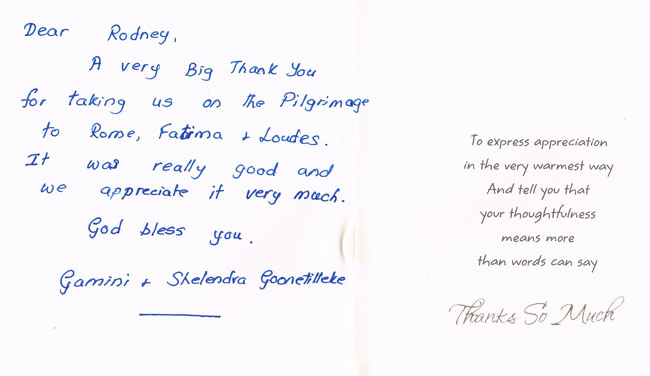 Dear Rodney,
A very Big Thank You
for taking us on the Pilgrimage
to Rome, Fatima + Loudes.
It was really good and
we appreciate it very much.
God bless you.
Gamini + Shelendra Goonetilleke
To express appreciation
in the very warmest way
And tell you that
your thoughtfulness
means more
than words can say
Thanks So Much